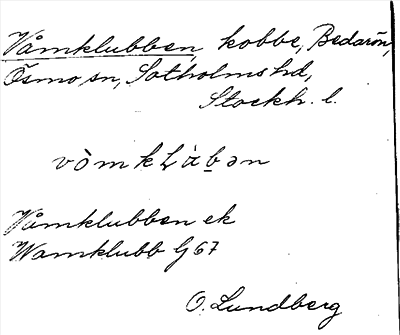 Våmklubben, kobbe, Bedarön,
Ösmo sn, Sotholms hd,
Stockh. l.
vòmkḷàb̲ən
Våmklubben ek
Wamklubb G 67
O. Lundberg